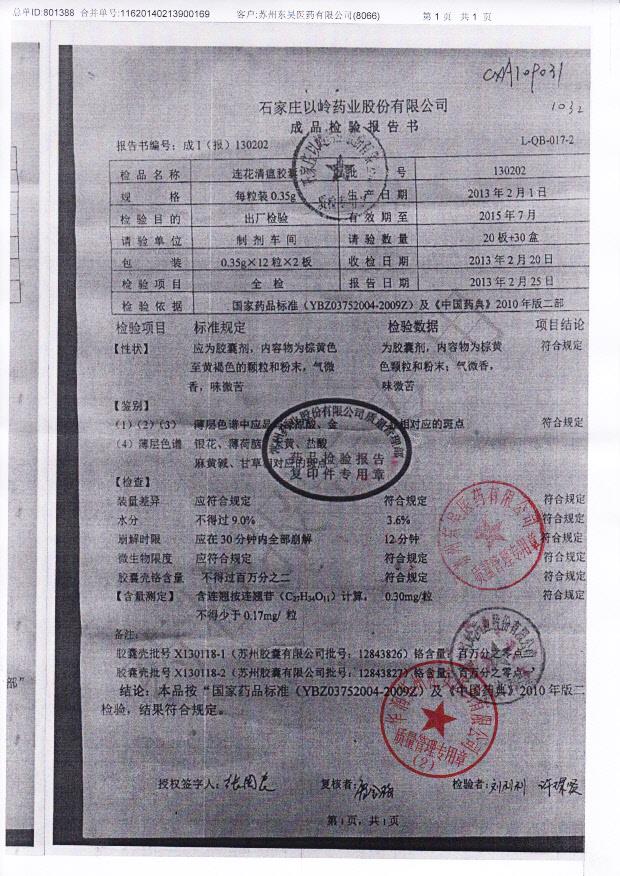 总单ID:801388 合并单号:11620140213900169 客户:苏州东吴医药有限公司(8066) 第 1 页 共 1 页
CXA109031
1032
石家庄以岭药业股份有限公司
成品检验报告书
报告书编号：成 I（报）130202 L-QB-017-2
检品名称 连花清瘟胶囊 批 号 130202
规 格 每粒装 0.35g 生产日期 2013 年 2 月 1 日
检验目的 出厂检验 有效期至 2015 年 7 月
请验单位 制剂车间 请验数量 20 板+30 盒
包 装 0.35g×12 粒×2 板 收检日期 2013 年 2 月 20 日
检验项目 全 检 报告日期 2013 年 2 月 25 日
检验依据 国家药品标准（YBZ03752004-2009Z）及《中国药典》2010 年版二部
检验项目 标准规定 检验数据 项目结论
【性状】 应为胶囊剂，内容物为棕黄色 为胶囊剂，内容物为棕黄 符合规定
至黄褐色的颗粒和粉末，气微 色颗粒和粉末；气微香，
香，味微苦 味微苦
【鉴别】
（1）（2）（3） 薄层色谱中应显 酸、金 相对应的斑点 符合规定
（4）薄层色谱 银花、薄荷脑、大黄、盐酸
麻黄碱、甘草相对应的斑点
【检查】
装量差异 应符合规定 符合规定 符合规定
水分 不得过 9.0% 3.6% 符合规定
崩解时限 应在 30 分钟内全部崩解 12 分钟 符合规定
微生物限度 应符合规定 符合规定 符合规定
胶囊壳铬含量 不得过百万分之二 符合规定 符合规定
【含量测定】 含连翘按连翘苷（C27H34O11）计算， 0.30mg/粒 符合规定
不得少于 0.17mg/ 粒
备注：
胶囊壳批号 X130118-1（苏州胶囊有限公司批号：12843826）铬含量：百万分之零点
胶囊壳批号 X130118-2（苏州胶囊有限公司批号：12843827）铬含量：百万分之零点
结论：本品按“国家药品标准（YBZ03752004-2009Z）及《中国药典》2010 年版二
检验，结果符合规定。
药品检验报告
复印件专用章
质量管理专用章
质量管理专用章
（2）
授权签字人： 复核者： 检验者：
第 1 页，共 1 页
部”